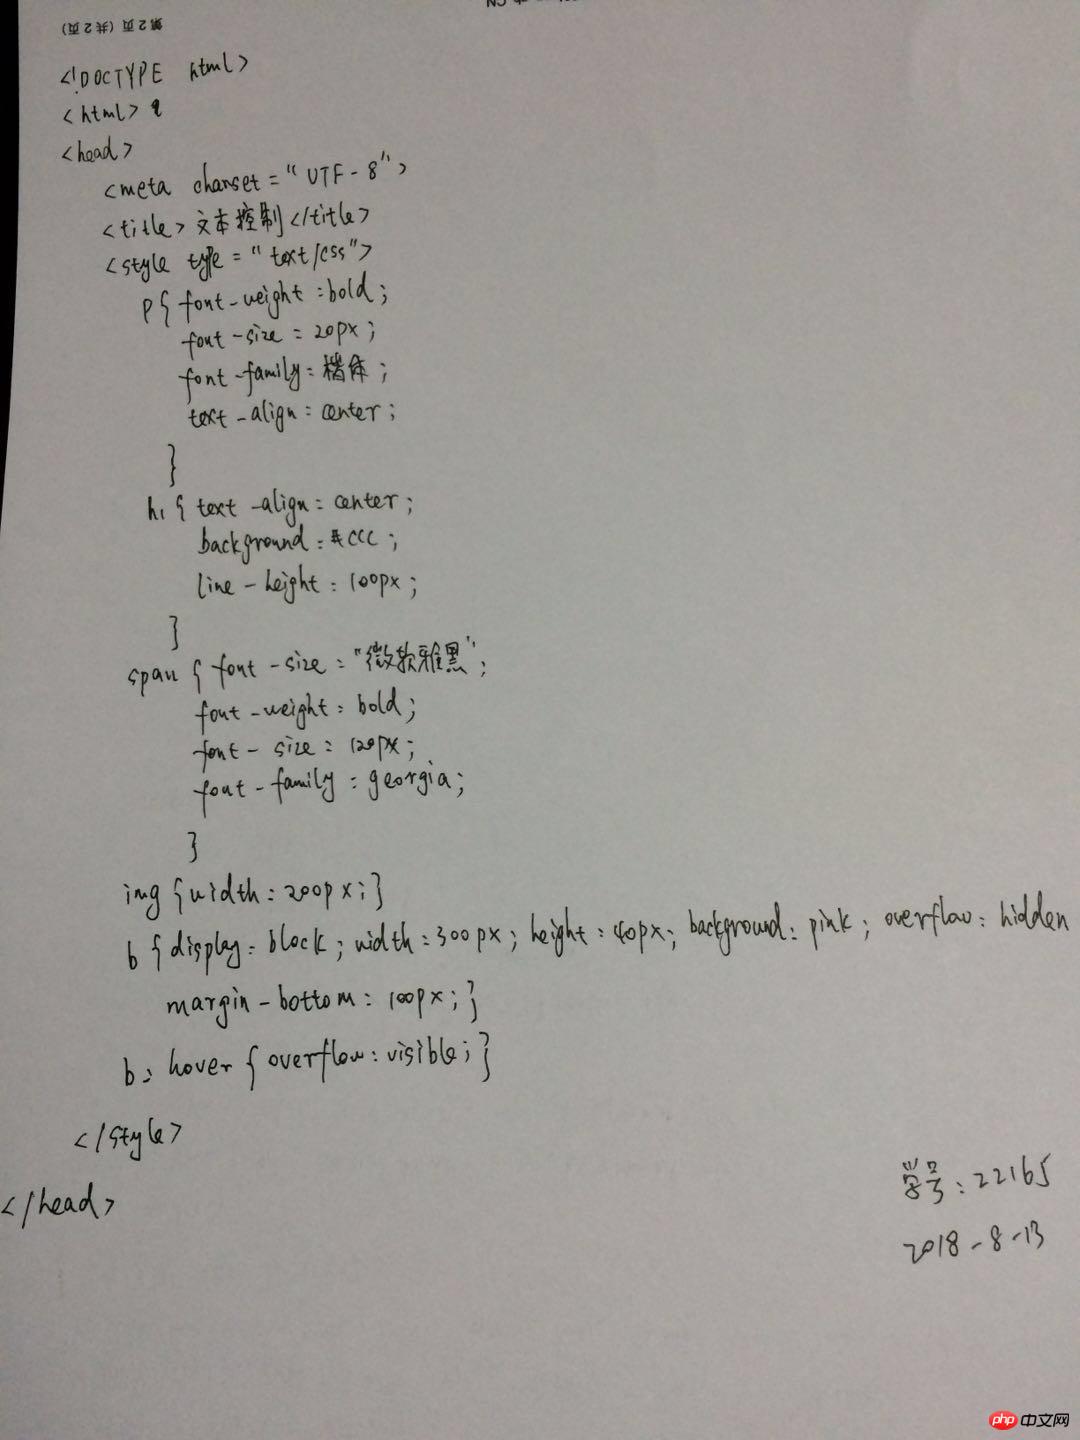 第2页 (共2页)
<!DOCTYPE html>
<html>
<head>
<meta charset="UTF-8">
<title>文本控制</title>
<style type="text/css">
p{ font-weight:bold;
font-size:20px;
font-family:楷体;
text-align:center;
}
h1{ text-align:center;
background:#CCC;
line-height:100px;
}
span{ font-size:"微软雅黑";
font-weight:bold;
font-size:120px;
font-family:georgia;
}
img{width:200px;}
b{display:block;width:300px;height:40px;background:pink;overflow:hidden
margin-bottom:100px;}
b:hover{overflow:visible;}
</style>
</head>
学号:22165
2018-8-13
php 中文网